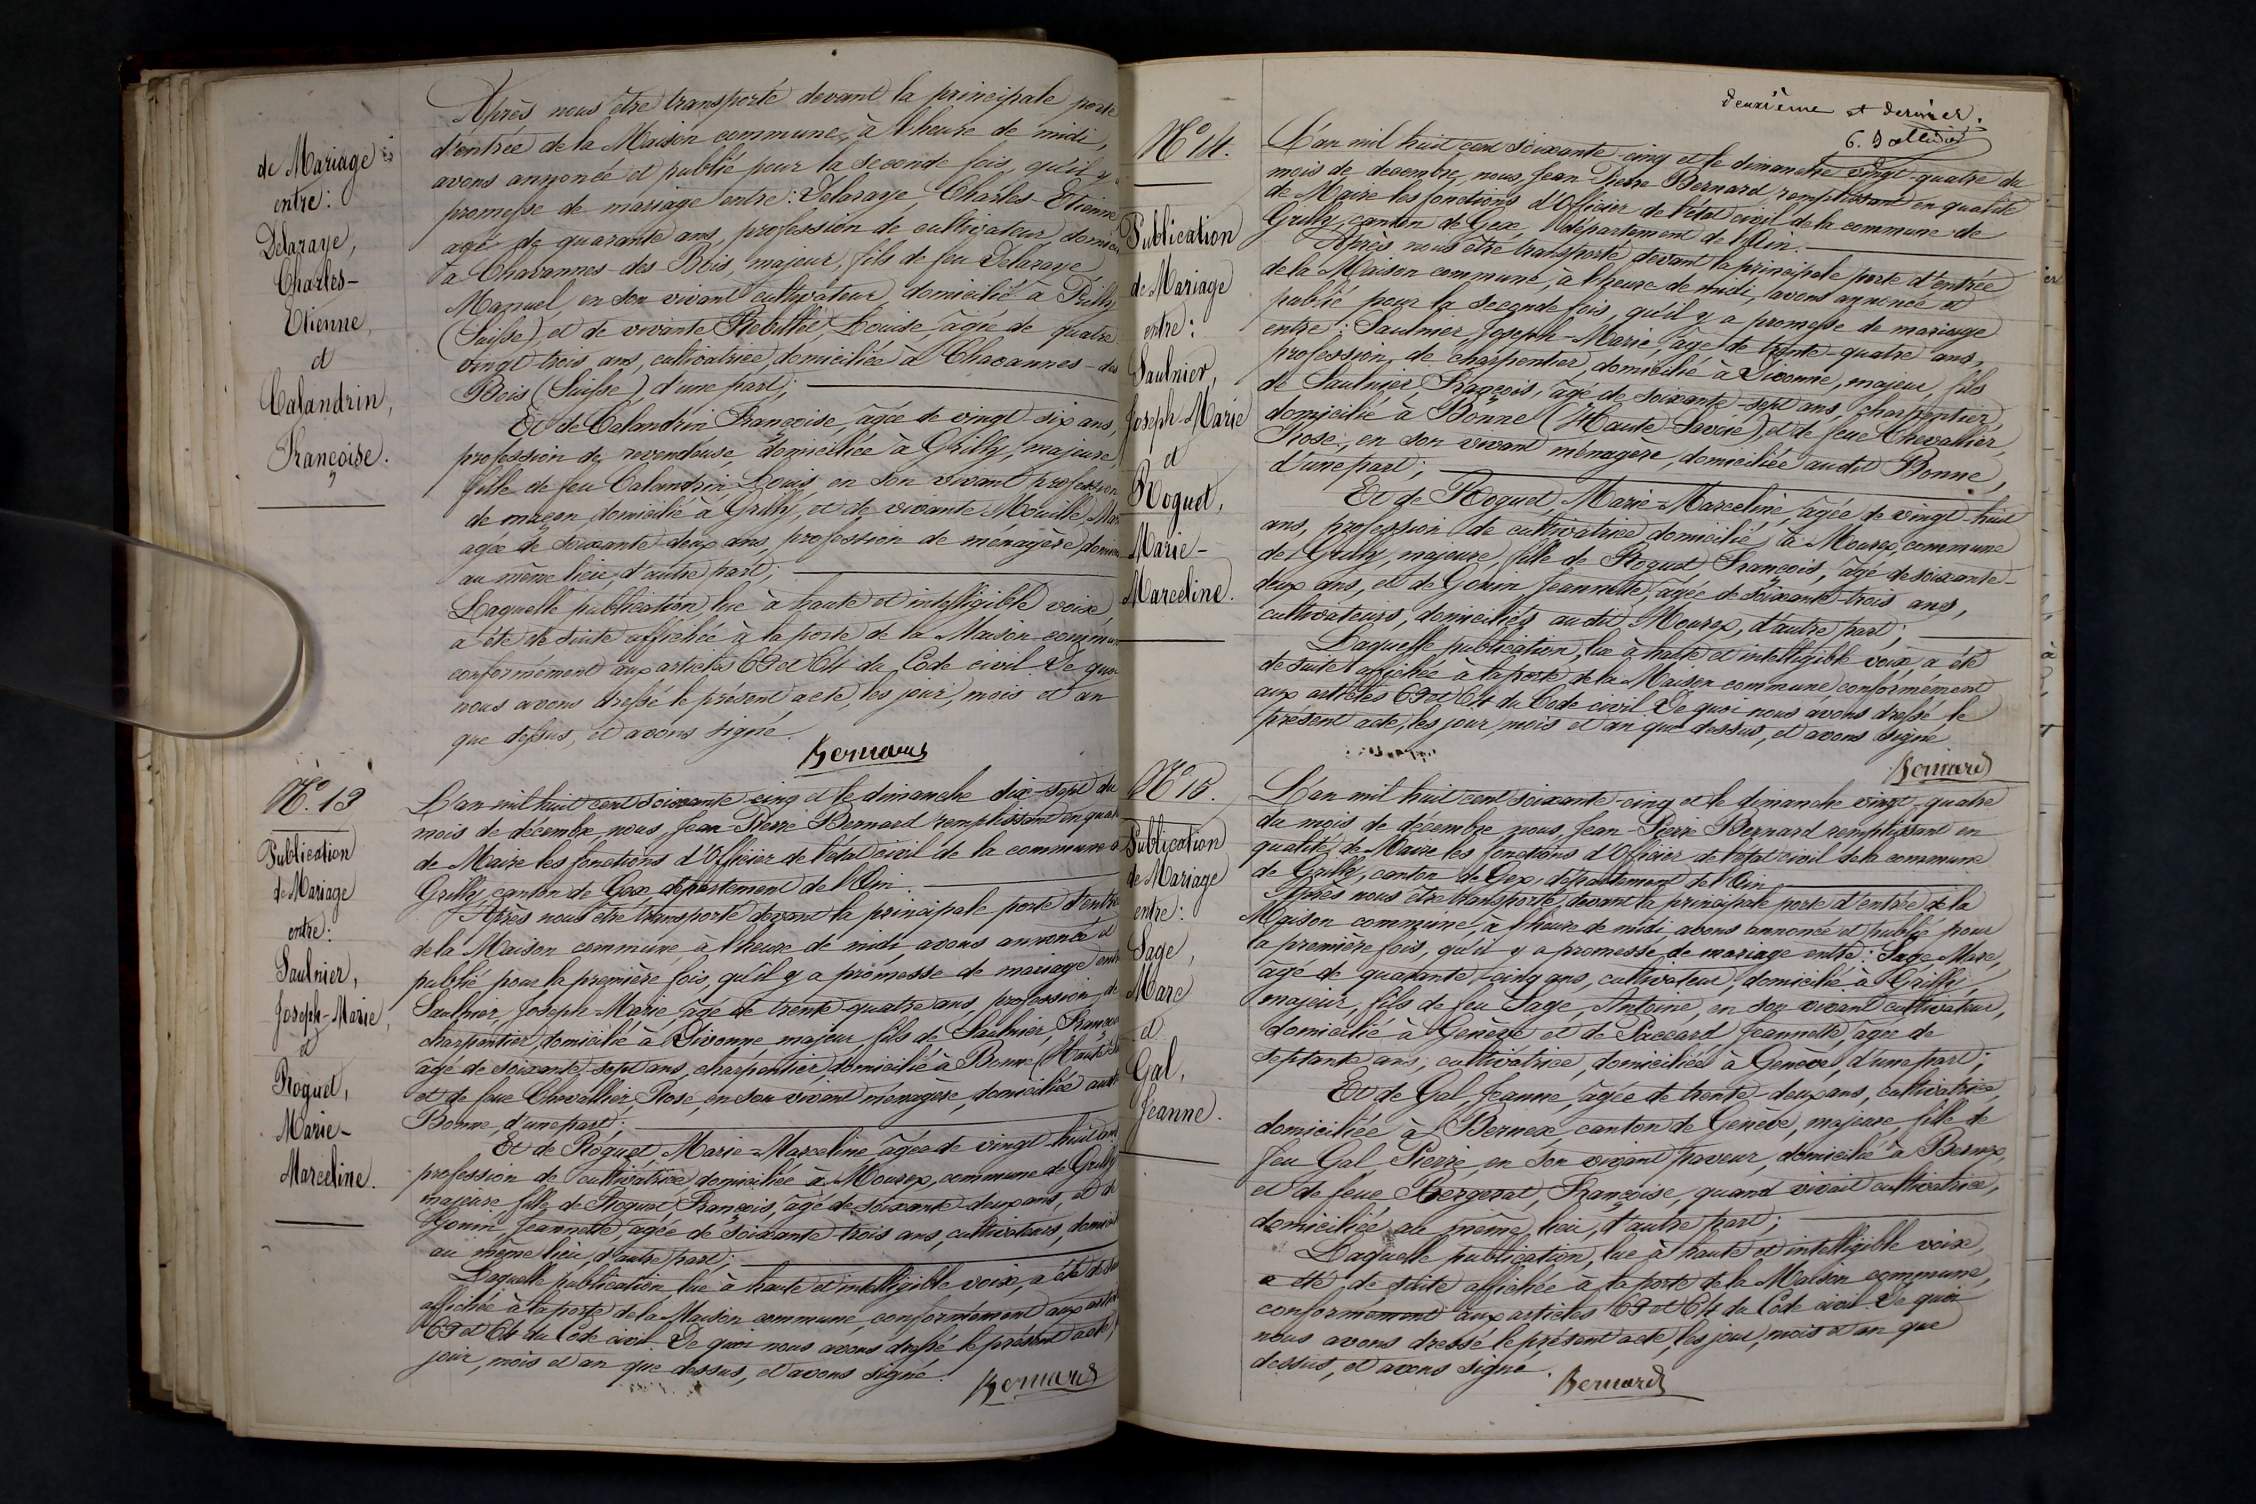 de Mariage
entre:
Delaraye,
Charles-
Etienne,
et
Calandrin,
Françoise.
Après nous être transporté devant la principale porte
d'entrée de la Maison commune, à l'heure de midi,
avons annoncé et publié pour la seconde fois, qu'il y
promesse de mariage entre: Delaraye, Charles-Etienne
agé de quarante ans, profession de cultivateur
à Chavannes-des Bois, majeur, fils de feu Delaraye
Manuel, en son vivant cultivateur, domicilié à Prilly
(Suisse), et de vivante Louise, agée de quatre
vingt-trois ans, cultivatrice, domiciliée à Chavannes-des
Bois (Suisse), d'une part;
Et de Calandrin Françoise, agée de vingt-six ans,
profession de revendeuse, domiciliée à Grilly, majeure,
fille de feu Calandrin Louis, en son vivant profession
de maçon, domicilié à Grilly, et de vivante Mouille,
agée de soixante-deux ans, profession de ménagère,
au même lieu, d'autre part;
Laquelle publication, lue à haute et intelligible voix,
a été de suite affichée à la porte de la Maison
conformément aux articles 63 et 64 du Code civil. De quoi
nous avons dressé le présent acte, les jour, mois et an
que dessus, et avons signé.
Bernard
N° 13
Publication
de Mariage
entre:
Saulnier,
Joseph-Marie,
et
Roguet,
Marie-
Marceline.
L'an mil huit cent soixante-cinq et le dimanche dix-sept du
mois de décembre, nous, Jean-Pierre Bernard remplissant en
de Maire les fonctions d'Officier de l'état civil de la commune
Grilly, canton de Gex, département de l'Ain.
Après nous être transporté devant la principale porte
de la Maison commune, à l'heure de midi, avons annoncé et
publié pour la première fois, qu'il y a promesse de mariage
Saulnier, Joseph-Marie, agé de trente-quatre ans, profession de
charpentier, domicilié à Divonne, majeur, fils de Saulnier,
agé de soixante-sept ans, charpentier, domicilié à Bonne
et de feue Chevallier, Rose, en son vivant ménagère, domiciliée
Bonne, d'une part;
Et de Roguet, Marie-Marceline, agée de vingt-huit
profession de cultivatrice, domiciliée à Mourex, commune de Grilly
majeure, fille de Roguet, François, agé de soixante-deux ans, et de
Gonin, Jeannette, agée de soixante-trois ans, cultivateurs,
au même lieu, d'autre part;
Laquelle publication, lue à haute et intelligible voix, a été
affichée à la porte de la Maison commune, conformément aux
63 et 64 du Code civil. De quoi nous avons dressé le présent acte,
jour, mois et an que dessus, et avons signé.
Bernard
deuxième et dernier.
N° 14.
Publication
de Mariage
entre:
Saulnier,
Joseph-Marie
et
Roguet,
Marie-
Marceline.
L'an mil huit cent soixante-cinq et le dimanche vingt-quatre du
mois de decembre, nous, Jean Pierre Bernard, remplissant en qualité
de Maire les fonctions d'Officier de l'état civil de la commune de
Grilly, canton de Gex, département de l'Ain.
Après nous être transporté devant la principale porte d'entrée
de la Maison commune, à l'heure de midi, avons annoncé et
publié pour la seconde fois, qu'il y a promesse de mariage
entre: Saulnier, Joseph-Marie, agé de trente-quatre ans,
profession de charpentier, domicilié à Divonne, majeur, fils
de Saulnier, François, agé de soixante-sept ans, charpentier,
domicilié à Bonne (Haute-Savoie), et de feue Chevallier,
Rose, en son vivant ménagère, domiciliée audit Bonne,
d'une part;
Et de Roguet, Marie-Marceline, agée de vingt-huit
ans, profession de cultivatrice, domicilié à Mourex, commune
de Grilly, majeure, fille de Roguet, François, agé de soixante-
deux ans, et de Gonin, Jeannette, agée de soixante-trois ans,
cultivateurs, domiciliés audit Mourex, d'autre part;
Laquelle publication, lue à haute et intelligible voix, a été
de suite affichée à la porte de la Maison commune conformément
aux articles 63 et 64 du Code civil. De quoi nous avons dressé le
présent acte, les jour, mois et an que dessus, et avons signé
Bernard
N° 15.
Publication
de Mariage
entre:
Sage,
Marc
et
Gal,
Jeanne.
L'an mil huit cent soixante-cinq et le dimanche vingt-quatre
du mois de décembre, nous, Jean-Pierre Bernard remplissant en
qualité de Maire les fonctions d'Officier de l'état civil de la commune
de Grilly, canton de Gex, département de l'Ain
Après nous être transporté, devant la principale porte d'entrée de la
Maison commune, à l'heure de midi avons annoncé et publié pour
la première fois, qu'il y a promesse de mariage entre: Sage, Marc,
agé de quarante-cinq ans, cultivateur, domicilié à Grilly,
majeur, fils de feu Sage, Antoine, en son vivant cultivateur,
domicilié à Genève et de Paccard Jeannette, agée de
septante ans, cultivatrice, domiciliée à Genève, d'une part;
Et de Gal, Jeanne, agée de trente-deux ans, cultivatrice,
domiciliée à Bernex, canton de Genève, majeure, fille de
feu Gal, Pierre, en son vivant paveur, domicilié à Bernex,
et de feue Bergerat, Françoise, quand vivait cultivatrice,
domiciliée au même lieu, d'autre part;
Laquelle publication, lue à haute et intelligible voix,
a été de suite affichée à la porte de la Maison commune,
conformément aux articles 63 et 64 du Code civil. De quoi
nous avons dressé le présent acte, les jour, mois et an que
dessus, et avons signé.
Bernard